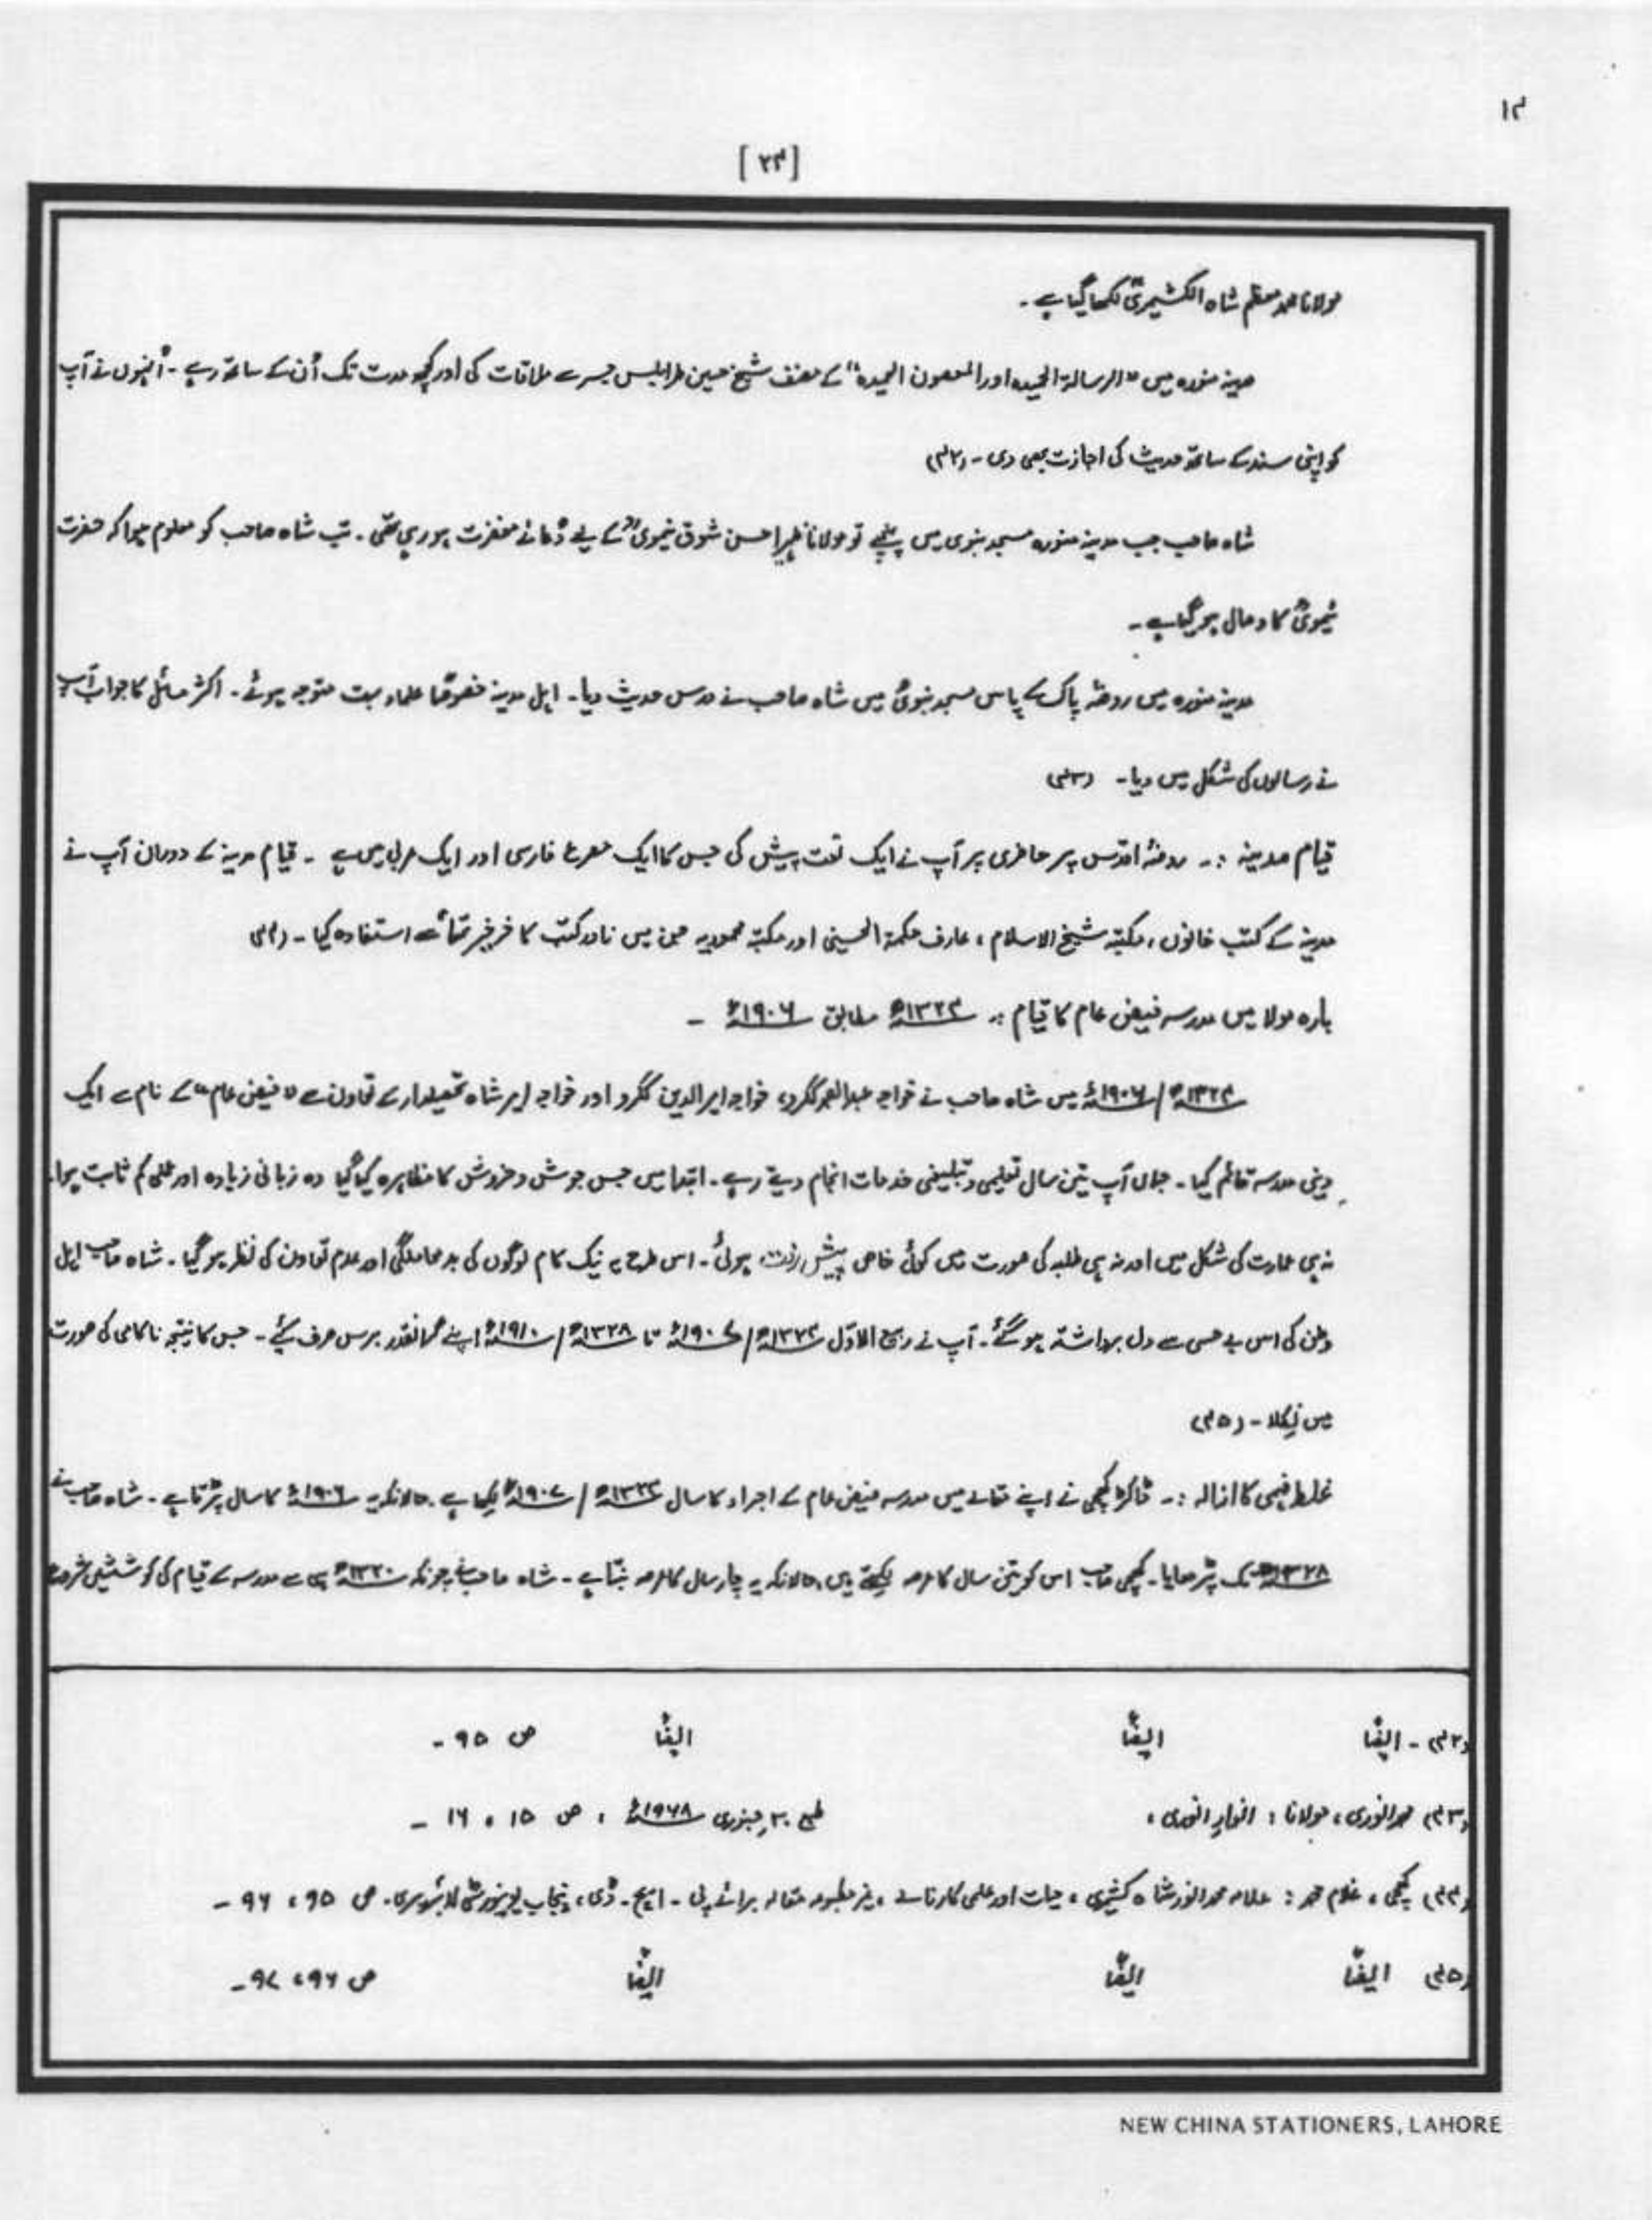 ۱۴
[۲۴]
مولانا محمد معظم شاہ الکشمیریؒ لکھا گیا ہے۔
مدینہ منورہ میں "الرسالۃ الحمیدہ اور الحصون الحمیدہ" کے مصنف شیخ حسین طرابلس جسر سے ملاقات کی اور کچھ مدت تک اُن کے ساتھ رہے۔ اُنہوں نے آپ
کو اپنی سند کے ساتھ حدیث کی اجازت بھی دی۔ (۴۲)
شاہ صاحب جب مدینہ منورہ مسجد نبوی میں پہنچے تو مولانا ظہیر احسن شوق نیمویؒ کے لیے دُعائے مغفرت ہو رہی تھی۔ تب شاہ صاحب کو معلوم ہوا کہ حضرت
نیمویؒ کا وصال ہو گیا ہے۔
مدینہ منورہ میں روضۂ پاک کے پاس مسجد نبویؐ میں شاہ صاحب نے درس حدیث دیا۔ اہل مدینہ خصوصًا علماء بہت متوجہ ہوئے۔ اکثر مسائل کا جواب آپ
نے رسالوں کی شکل میں دیا۔ (۴۳)
قیام مدینہ :۔ روضۂ اقدس پر حاضری پر آپ نے ایک نعت پیش کی جس کا ایک مصرع فارسی اور ایک عربی میں ہے ۔ قیام مدینہ کے دوران آپ نے
مدینہ کے کتب خانوں، مکتبہ شیخ الاسلام، عارف حکمۃ الحسینی اور مکتبہ محمودیہ جن میں نادر کتب کا ذخیرہ تھا سے استفادہ کیا۔ (۴۴)
بارہ مولا میں مدرسہ فیض عام کا قیام :۔ ۱۳۲۴ھ مطابق ۱۹۰۶ء ۔
۱۳۲۴ھ/۱۹۰۶ء میں شاہ صاحب نے خواجہ عبدالصمد ککرو، خواجہ امیر الدین ککرو اور خواجہ امیر شاہ تحصیلدار کے تعاون سے "فیض عام" کے نام سے ایک
دینی مدرسہ قائم کیا۔ جہاں آپ تین سال تعلیمی و تبلیغی خدمات انجام دیتے رہے۔ ابتدا میں جس جوش و خروش کا مظاہرہ کیا گیا وہ زبانی زیادہ اور عملی کم ثابت ہوا۔
نہ ہی عمارت کی شکل میں اور نہ ہی طلبہ کی صورت میں کوئی خاص پیش رفت ہوئی۔ اس طرح یہ نیک کام لوگوں کی بد معاملگی اور عدم تعاون کی نظر ہو گیا۔ شاہ صاحب اہل
وطن کی اس بے حسی سے دل برداشتہ ہو گئے۔ آپ نے ربیع الاوّل ۱۳۲۴ھ/۱۹۰۷ء تا ۱۳۲۸ھ/۱۹۱۰ء اپنے گرانقدر برس صرف کیے۔ جس کا نتیجہ ناکامی کی صورت
میں نکلا۔ (۴۵)
غلط فہمی کا ازالہ :۔ ڈاکٹر لچھی نے اپنے مقالے میں مدرسہ فیض عام کے اجراء کا سال ۱۳۲۴ھ/۱۹۰۷ء لکھا ہے، حالانکہ یہ ۱۹۰۶ء کا سال پڑتا ہے۔ شاہ صاحب نے
۱۳۲۸ھ تک پڑھایا۔ لچھی صاحب اس کو تین سال کا عرصہ لکھتے ہیں، حالانکہ یہ چار سال کا عرصہ بنتا ہے۔ شاہ صاحب نے چونکہ ۱۳۲۰ھ ہی سے مدرسہ کے قیام کی کوششیں شروع
(۴۲)۔ ایضًا ایضًا ایضًا ص ۹۵ ۔
(۴۳) محمد انوری، مولانا : انوارِ انوری، طبع ۳۰ جنوری ۱۹۶۸ء ، ص ۱۵ ، ۱۶ ۔
(۴۴) لچھی، غلام محمد : علامہ محمد انور شاہ کشمیری ، حیات اور علمی کارنامے ، غیر مطبوعہ مقالہ برائے پی ۔ ایچ ۔ ڈی، پنجاب یونیورسٹی لائبریری، ص ۹۵ ، ۹۶ ۔
(۴۵) ایضًا ایضًا ایضًا ص ۹۶، ۹۷ ۔
NEW CHINA STATIONERS, LAHORE